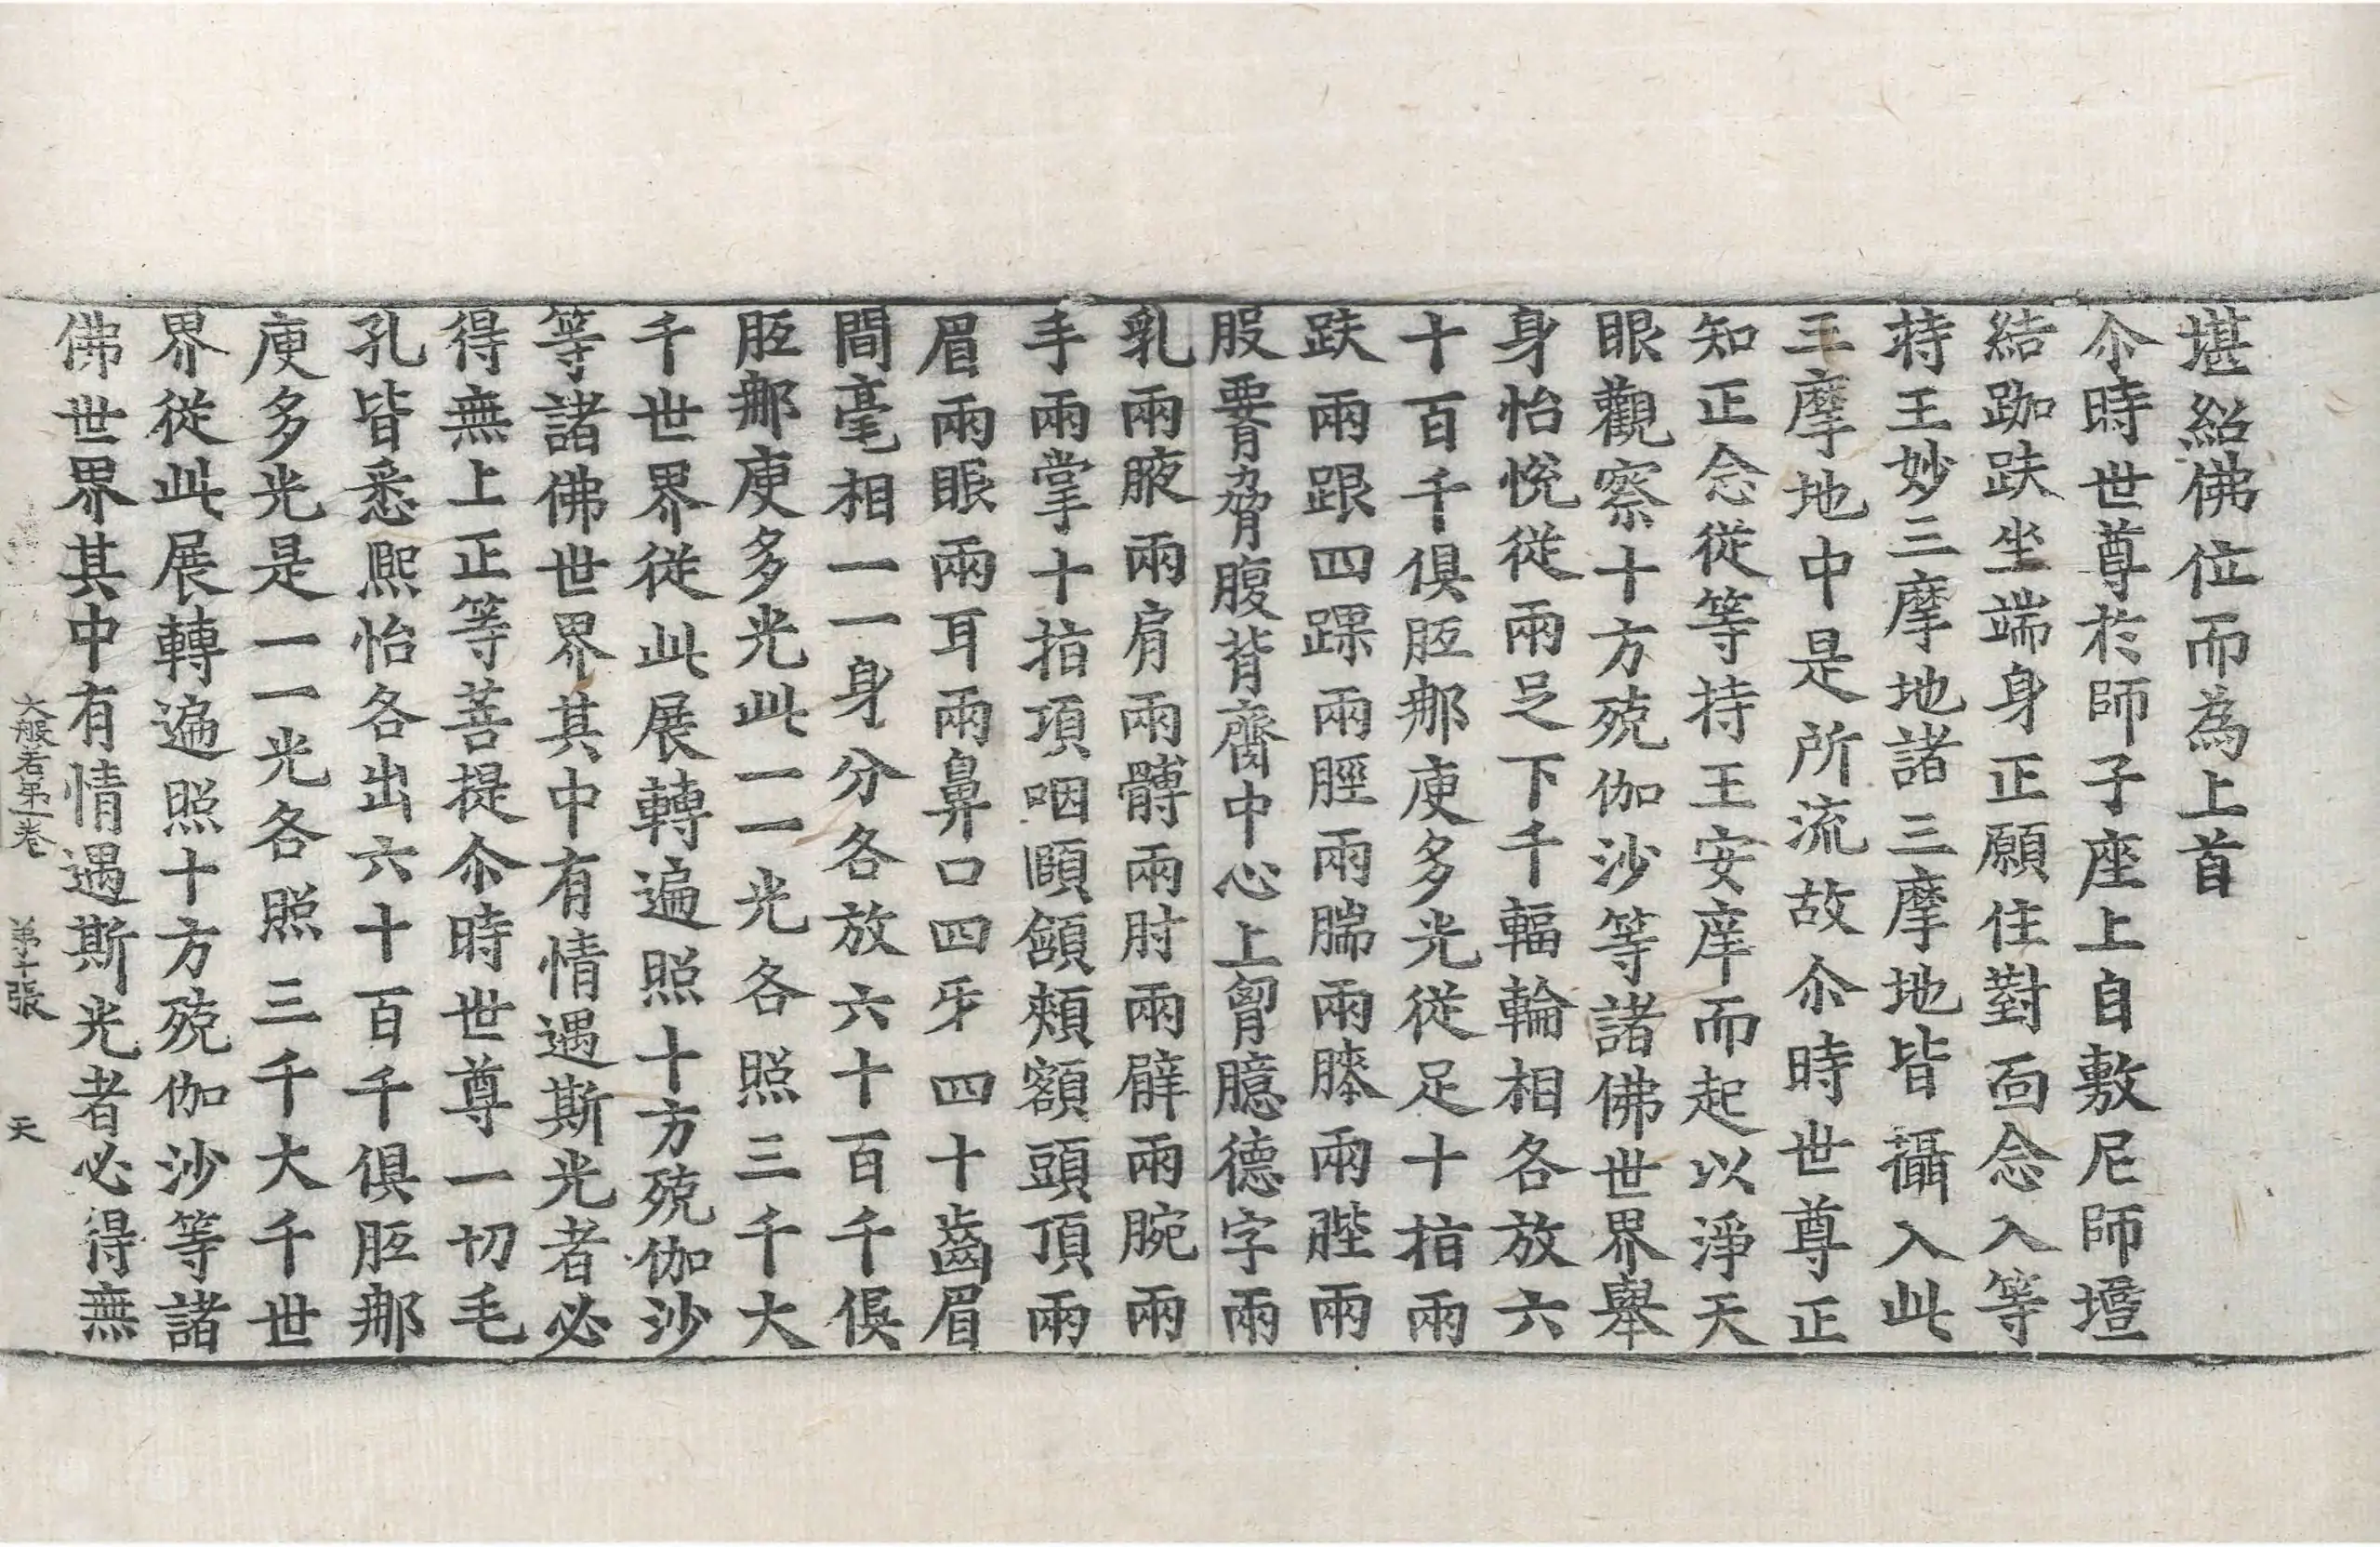 堪紹佛位而為上首
尒時世尊於師子座上自敷尼師壇
結跏趺坐端身正願住對面念入等
持王妙三摩地諸三摩地皆攝入此
三摩地中是所流故尒時世尊正
知正念從等持王安庠而起以淨天
眼觀察十方殑伽沙等諸佛世界舉
身怡悅從兩足下千輻輪相各放六
十百千俱胝那庾多光從足十指兩
趺兩跟四踝兩脛兩腨兩膝兩䏶兩
股要脅腹背齊中心上胷臆德字兩
乳兩腋兩肩兩髆兩肘兩臂兩腕兩
手兩掌十指項咽頤頷頰額頭頂兩
眉兩眼兩耳兩鼻口四牙四十齒眉
間毫相一一身分各放六十百千俱
胝那庾多光此一一光各照三千大
千世界從此展轉遍照十方殑伽沙
等諸佛世界其中有情遇斯光者必
得無上正等菩提尒時世尊一切毛
孔皆悉熈怡各出六十百千俱胝那
庾多光是一一光各照三千大千世
界從此展轉遍照十方殑伽沙等諸
佛世界其中有情遇斯光者必得無
大般若第一卷 第十張 天